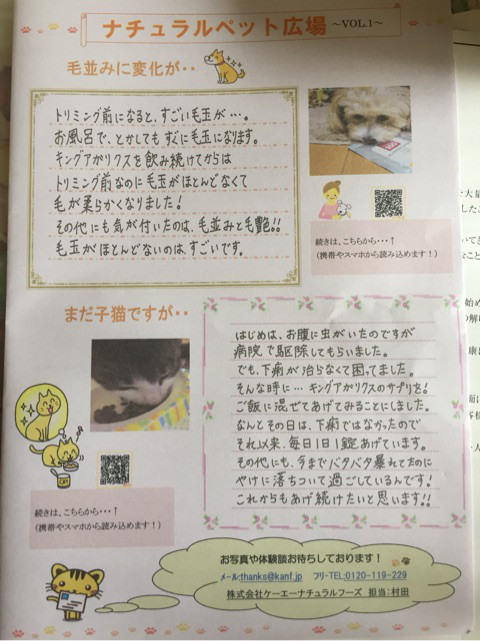 ナチュラルペット広場 ～VOL.1～
毛並みに変化が‥
トリミング前になると、すごい毛玉が…。
お風呂で、とかしてもすぐに毛玉になります。
キングアガリクスを飲み続けてからは
トリミング前なのに毛玉がほとんどなくて
毛が柔らかくなりました！
その他にも気が付いたのは、毛並みと毛艶!!
毛玉がほとんどないのは、すごいです。
続きは、こちらから・・・↑
（携帯やスマホから読み込めます！）
まだ子猫ですが‥
はじめは、お腹に虫がいたのですが
病院で駆除してもらいました。
でも、下痢が治らなくて困ってました。
そんな時に… キングアガリクスのサプリを！
ご飯に混ぜてあげてみることにしました。
なんとその日は、下痢ではなかったので
それ以来、毎日1日1錠あげています。
その他にも、今までバタバタ暴れてたのに
やけに落ちついて過ごしているんです！
これからもあげ続けたいと思います!!
続きは、こちらから・・・↑
（携帯やスマホから読み込めます！）
お写真や体験談お待ちしております！
メール:thanks@kanf.jp フリ-TEL:0120-119-229
株式会社ケーエーナチュラルフーズ 担当：村田